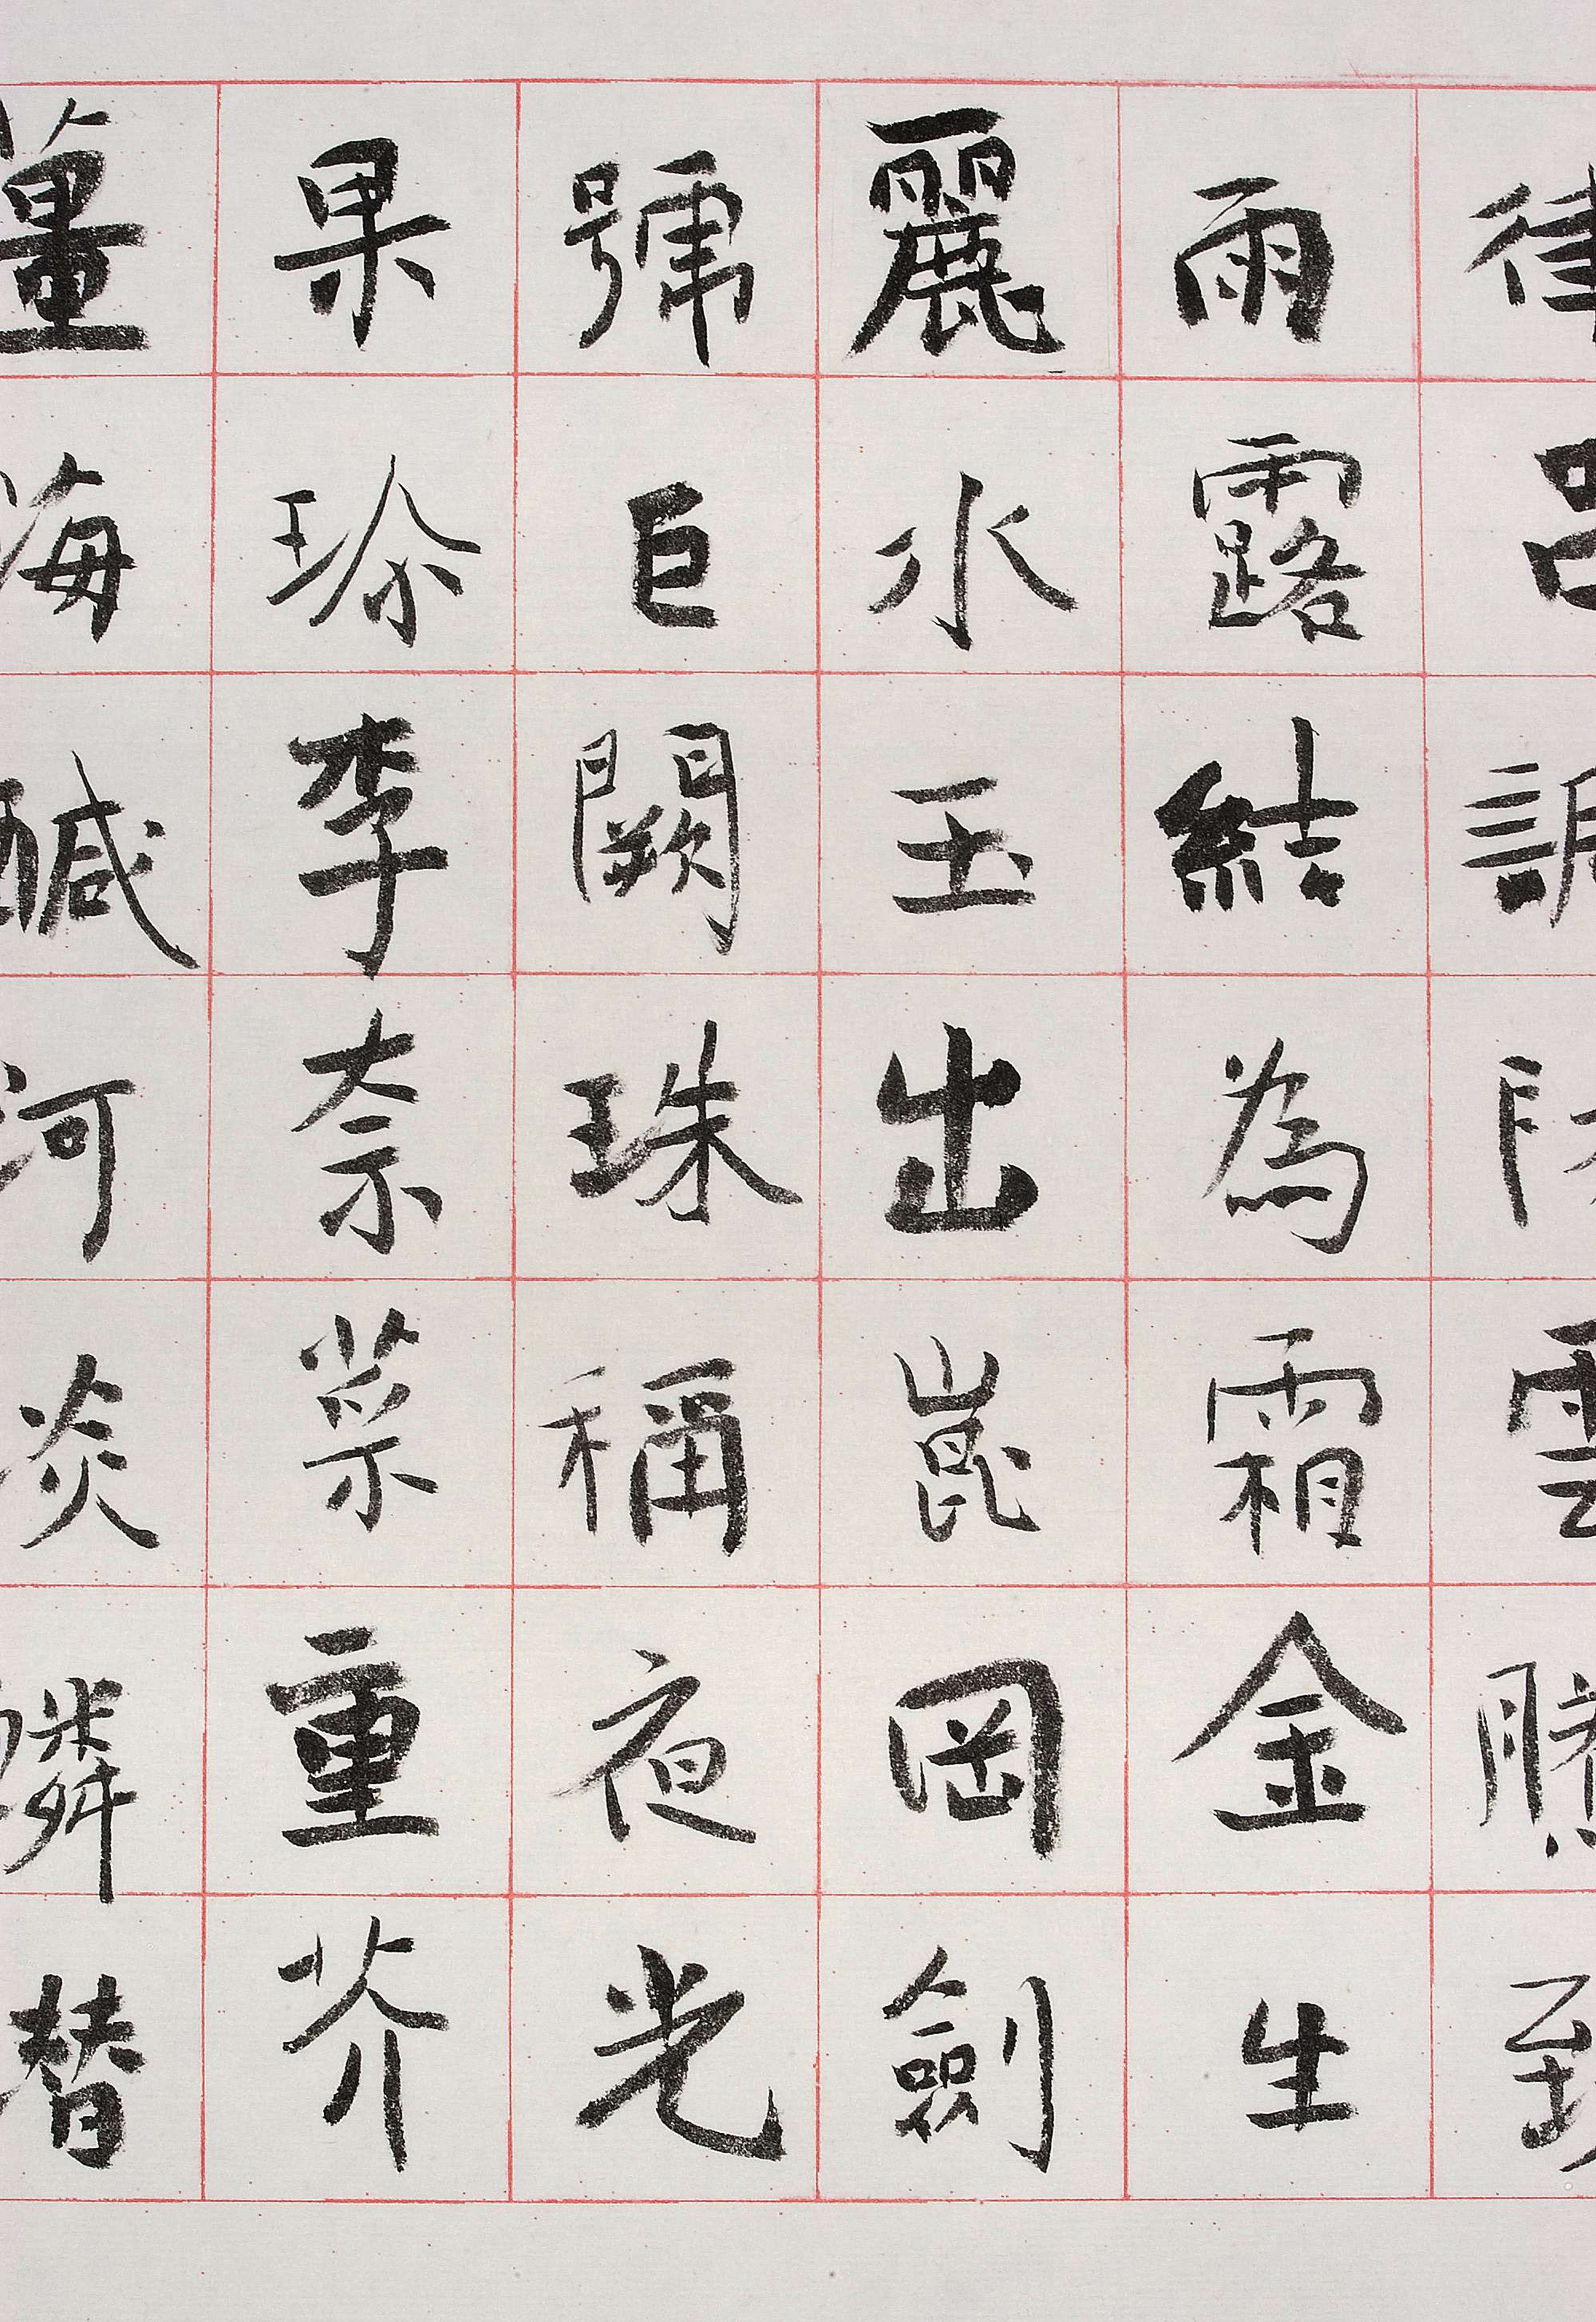 律呂調陽雲騰致
雨露結為霜金生
麗水玉出崑岡劍
號巨闕珠稱夜光
果珍李柰菜重芥
薑海鹹河淡鱗替